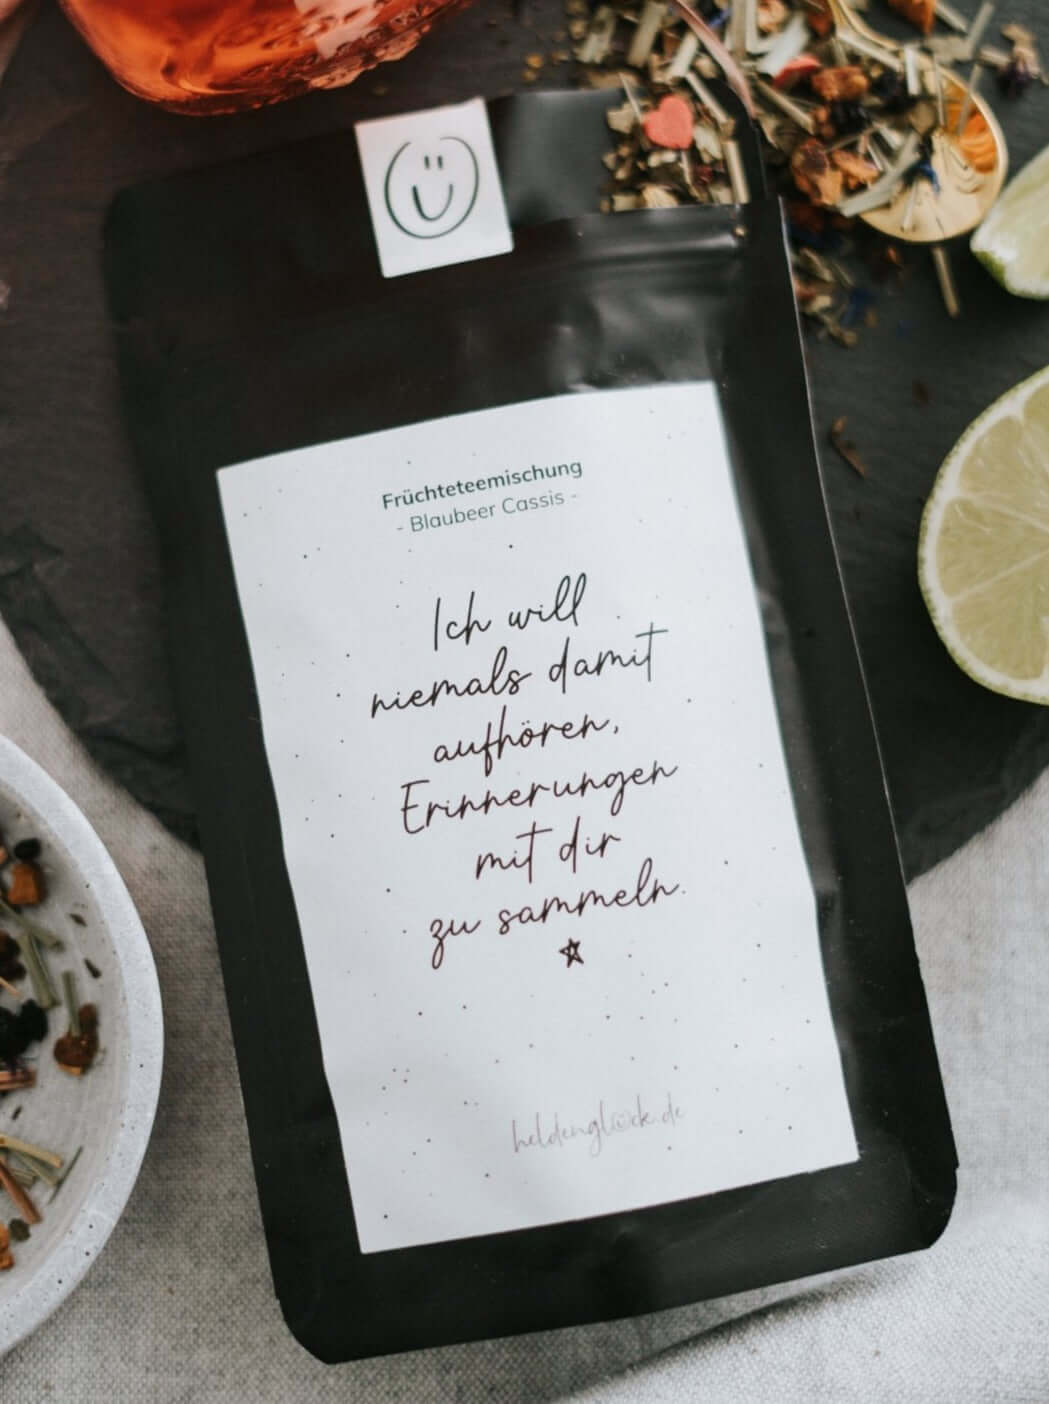 Früchteteemischung
- Blaubeer Cassis -
Ich will
niemals damit
aufhören,
Erinnerungen
mit dir
zu sammeln.
heldenglück.de